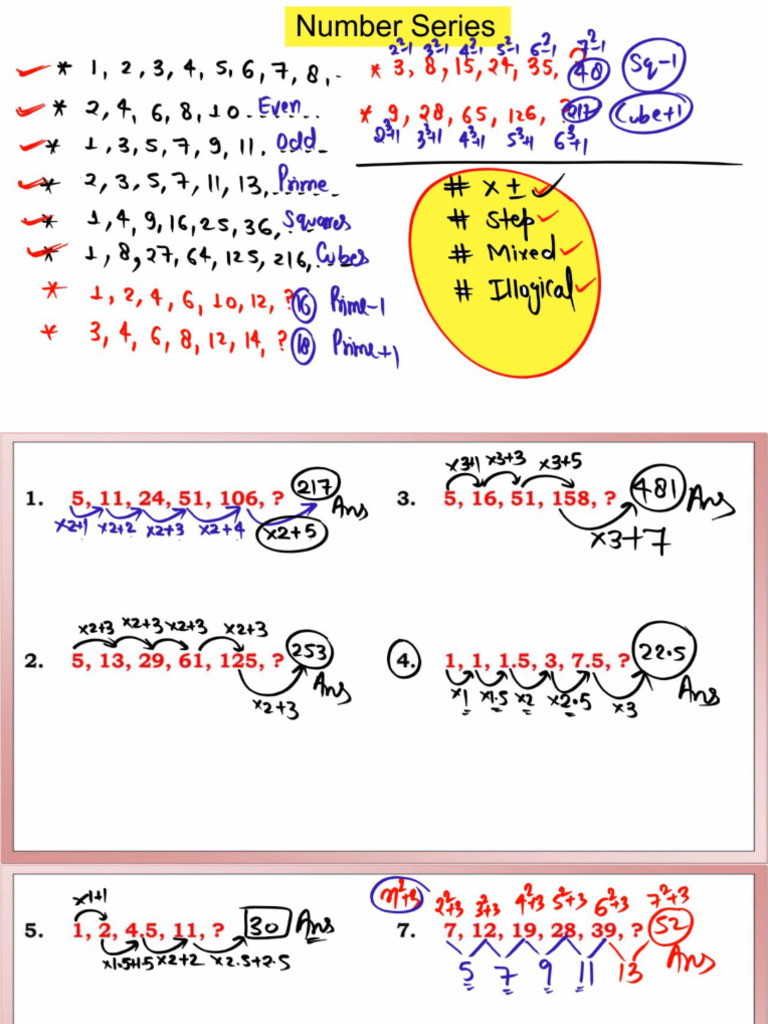 Number Series
* 1, 2, 3, 4, 5, 6, 7, 8, -
* 2, 4, 6, 8, 10 Even
* 1, 3, 5, 7, 9, 11, Odd
* 2, 3, 5, 7, 11, 13, Prime
* 1, 4, 9, 16, 25, 36, Squares
* 1, 8, 27, 64, 125, 216, Cubes
* 1, 2, 4, 6, 10, 12, ? 16 Prime-1
* 3, 4, 6, 8, 12, 14, ? 18 Prime+1
2²-1 3²-1 4²-1 5²-1 6²-1 7²-1
* 3, 8, 15, 24, 35, ? 48 Sq-1
* 9, 28, 65, 126, ? 217 Cube+1
2³+1 3³+1 4³+1 5³+1 6³+1
# × ±
# Step
# Mixed
# Illogical
1. 5, 11, 24, 51, 106, ? 217 Ans
×2+1 ×2+2 ×2+3 ×2+4 ×2+5
×2+3 ×2+3 ×2+3 ×2+3
2. 5, 13, 29, 61, 125, ? 253 Ans
×2+3
×3+1 ×3+3 ×3+5
3. 5, 16, 51, 158, ? 481 Ans
×3+7
4. 1, 1, 1.5, 3, 7.5, ? 22.5 Ans
×1 ×1.5 ×2 ×2.5 ×3
×1+1
5. 1, 2, 4.5, 11, ? 30 Ans
×1.5+1.5 ×2+2 ×2.5+2.5
n²+3 2²+3 3²+3 4²+3 5²+3 6²+3 7²+3
7. 7, 12, 19, 28, 39, ? 52 Ans
5 7 9 11 13